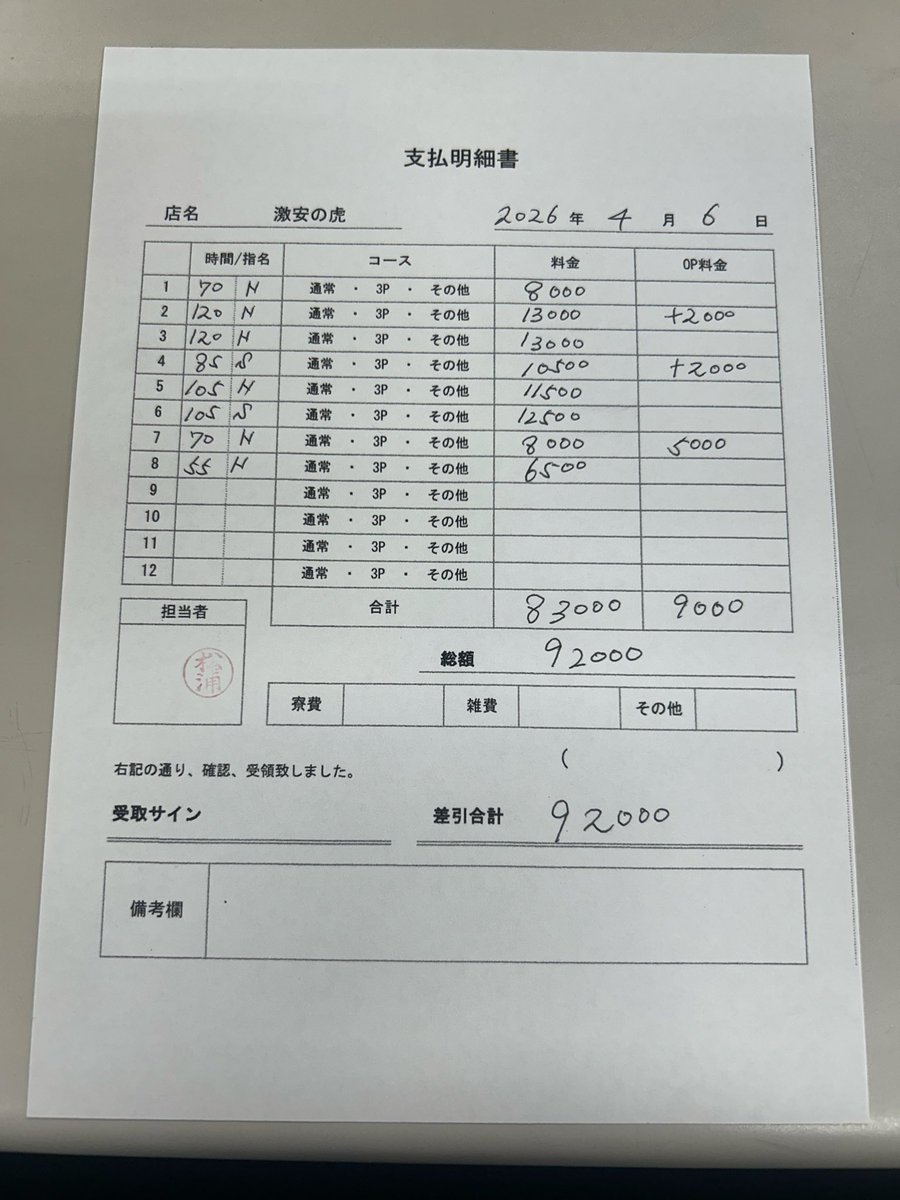 支払明細書
店名 激安の虎 2026年 4月 6日
時間/指名 コース 料金 OP料金
1 70 N 通常 ・ 3P ・ その他 8000
2 120 N 通常 ・ 3P ・ その他 13000 +2000
3 120 H 通常 ・ 3P ・ その他 13000
4 85 S 通常 ・ 3P ・ その他 10500 +2000
5 105 H 通常 ・ 3P ・ その他 11500
6 105 S 通常 ・ 3P ・ その他 12500
7 70 N 通常 ・ 3P ・ その他 8000 5000
8 55 H 通常 ・ 3P ・ その他 6500
9 通常 ・ 3P ・ その他
10 通常 ・ 3P ・ その他
11 通常 ・ 3P ・ その他
12 通常 ・ 3P ・ その他
合計 83000 9000
担当者
松浦
総額 92000
寮費 雑費 その他
( )
右記の通り、確認、受領致しました。
受取サイン 差引合計 92000
備考欄